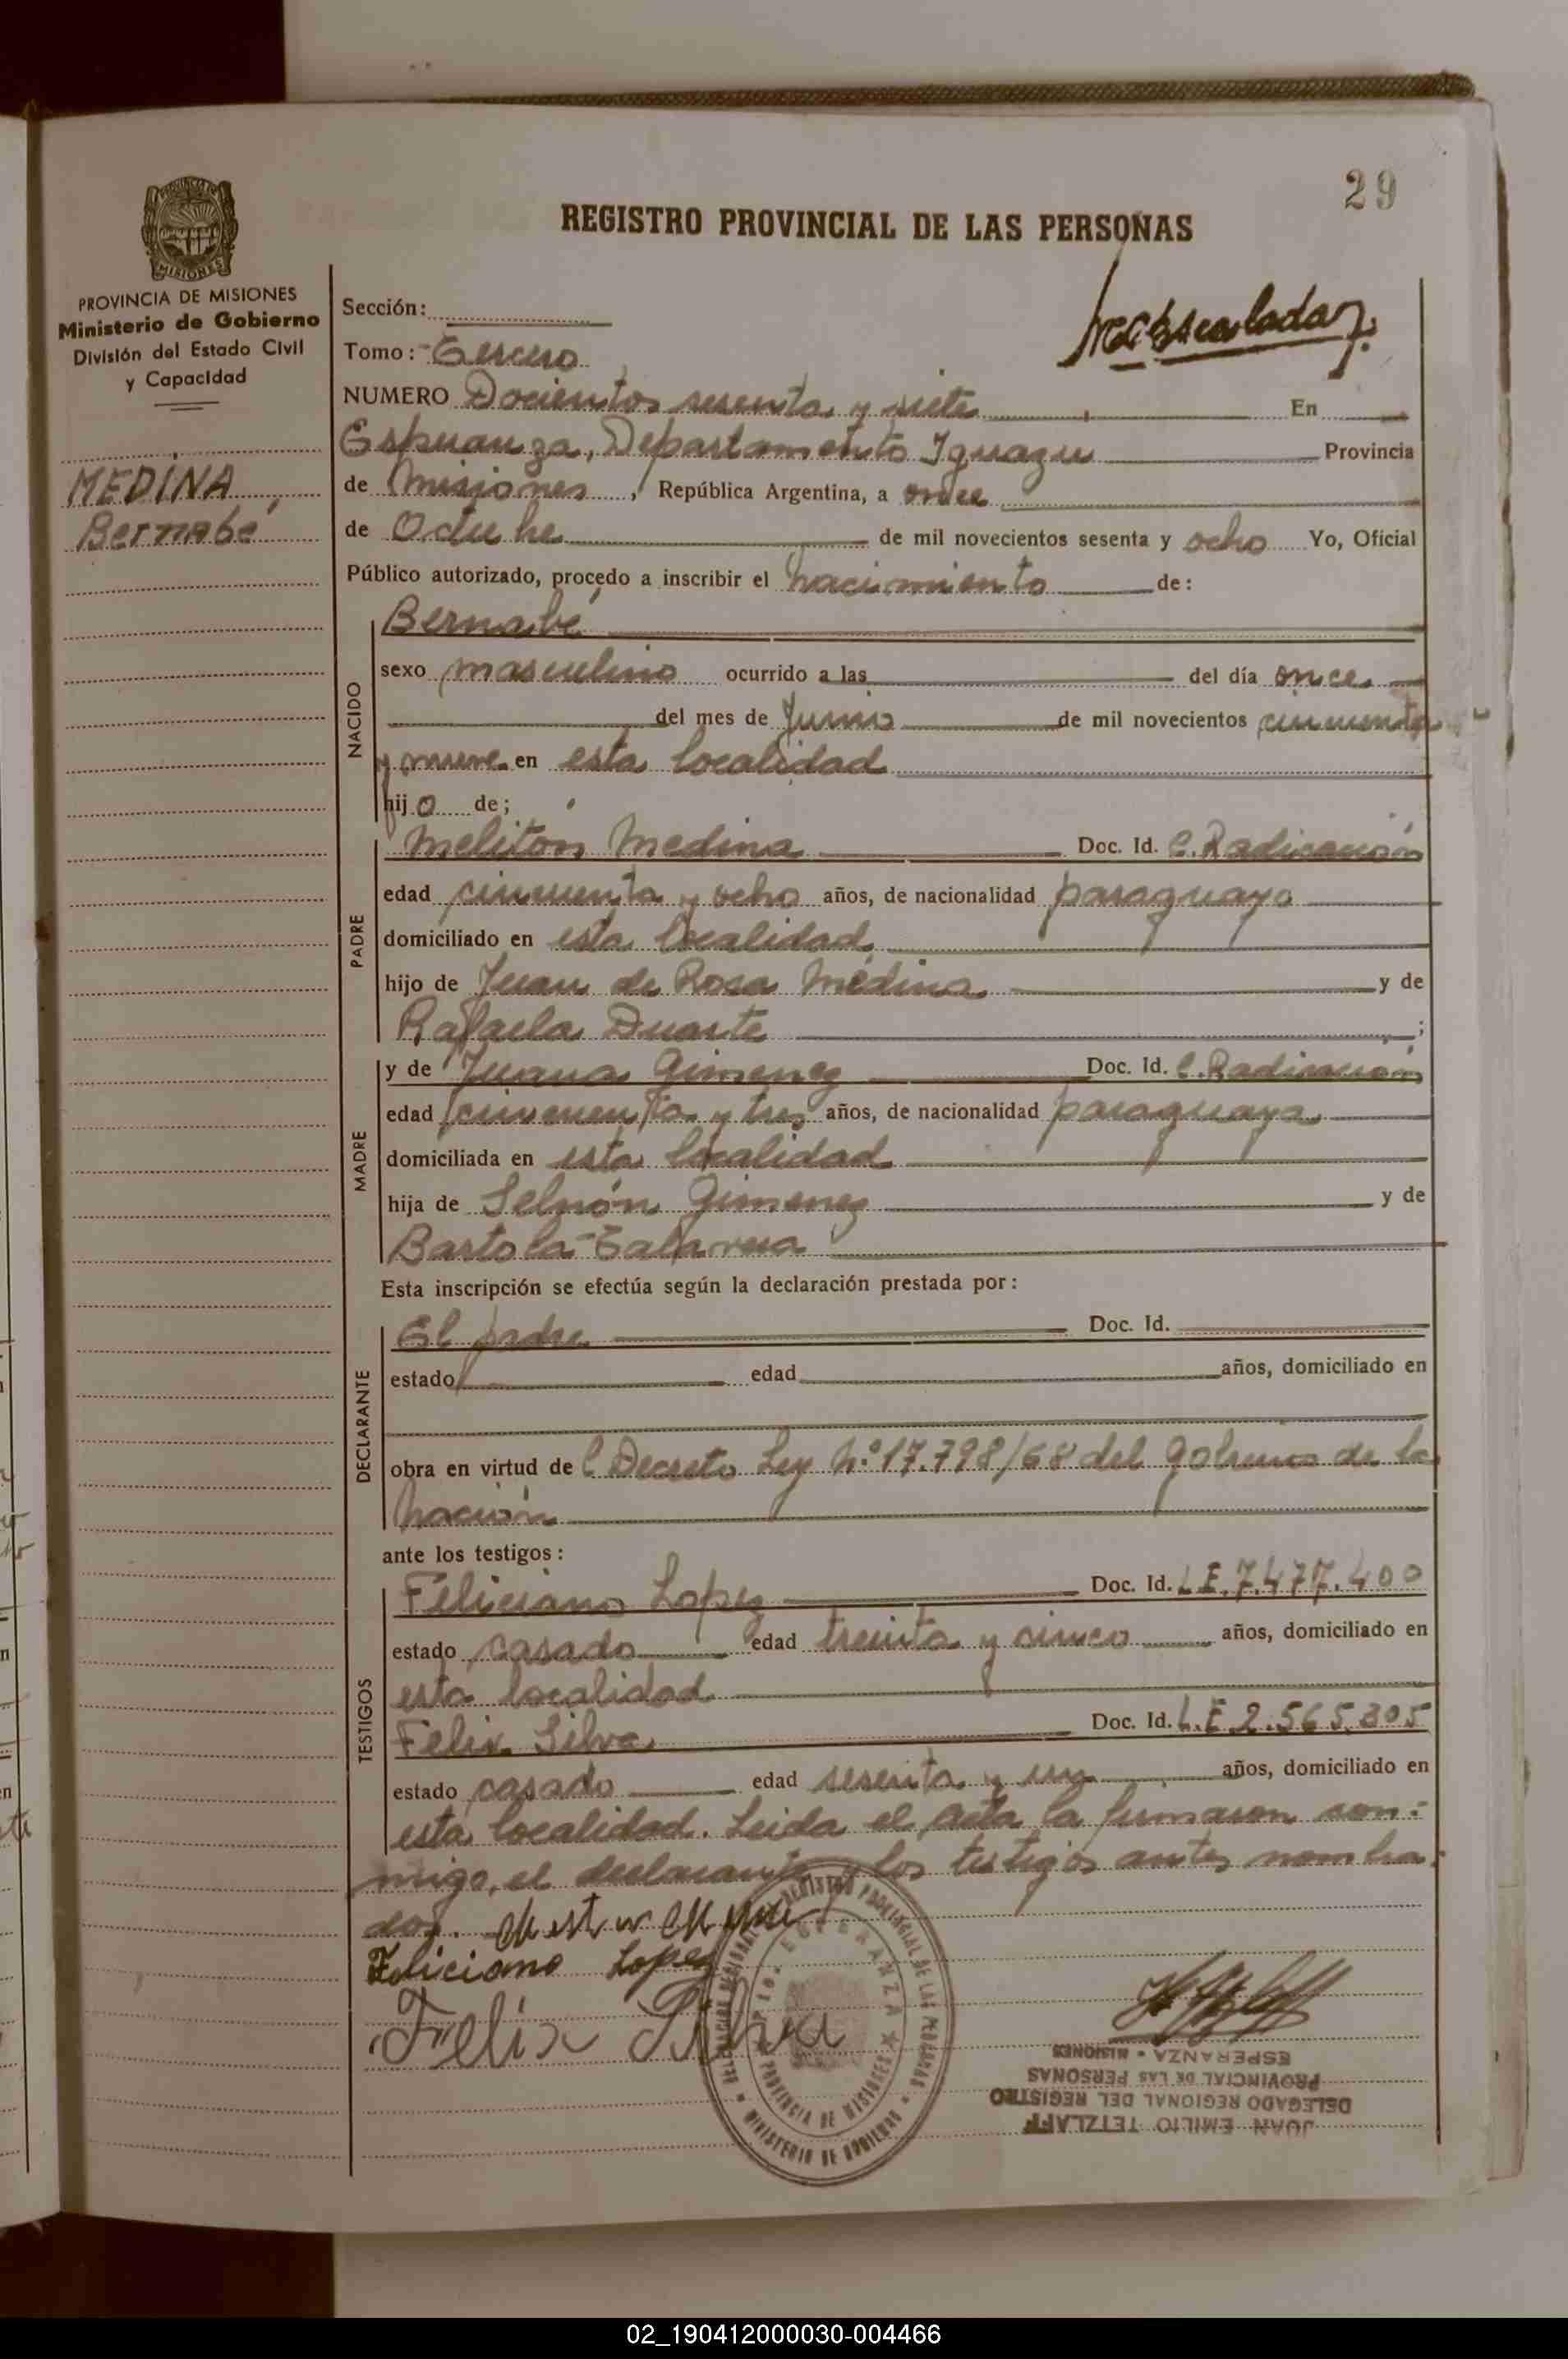 29
REGISTRO PROVINCIAL DE LAS PERSONAS
PROVINCIA DE MISIONES
Ministerio de Gobierno
División del Estado Civil
y Capacidad
MEDINA,
Bernabé
Sección:
Tomo: Tercero
NUMERO Docientos sesenta y siete En
Esperanza, Departamento Iguazu Provincia
de Misiones, República Argentina, a once
de Octubre de mil novecientos sesenta y ocho Yo, Oficial
Público autorizado, procedo a inscribir el nacimiento de:
NACIDO
Bernabé
sexo masculino ocurrido a las del día once
del mes de Junio de mil novecientos cincuenta
y nueve en esta localidad
hijo de;
PADRE
Melitón Medina Doc. Id. C. Radicación
edad cincuenta y ocho años, de nacionalidad paraguaya
domiciliado en esta localidad
hijo de Juan de Rosa Medina y de
Rafaela Duarte;
MADRE
y de Juana Gimenez Doc. Id. C. Radicación
edad cincuenta y tres años, de nacionalidad paraguaya
domiciliada en esta localidad
hija de Gimenez y de
Bartola
Esta inscripción se efectúa según la declaración prestada por:
DECLARANTE
El padre Doc. Id.
estado edad años, domiciliado en
obra en virtud del Decreto Ley Nº 17.798/68 del gobierno de la
Nación
ante los testigos:
TESTIGOS
Feliciano Lopez Doc. Id. L.E. 7.477.400
estado casado edad treinta y cinco años, domiciliado en
esta localidad
Felix Silva Doc. Id. L.E 2.565.305
estado casado edad sesenta y un años, domiciliado en
esta localidad. Leida el acta la firmaron con-
migo, el declarante y los testigos antes nombra-
dos.
Feliciano Lopez
Felix Silva
DELEGACION REGIONAL DEL REGISTRO PROVINCIAL DE LAS PERSONAS
ESPERANZA
PROVINCIA DE MISIONES
MINISTERIO DE GOBIERNO
JUAN EMILIO TETZLAFF
DELEGADO REGIONAL DEL REGISTRO
PROVINCIAL DE LAS PERSONAS
ESPERANZA - MISIONES
02_190412000030-004466